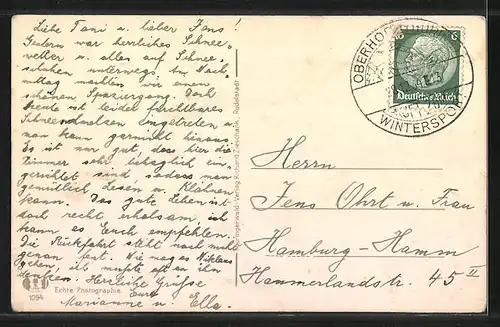 Liebe Toni u. lieber Jens!
Gestern war herrliches Schnee-
wetter u. alles auf Schnee-
schuhen unterwegs. Am Nach-
mittag machten wir einen
schönen Spaziergang. Doch
heute ist leider furchtbares
Schneetreiben eingetreten u.
man kann garnicht hinaus.
Es ist nur gut, dass hier die
Zimmer sehr behaglich ein-
gerichtet sind, sodass man
gemütlich Lesen u. Klöhnen
kann. Das gute Leben ist
doch recht erholsam, ich
kann es Euch empfehlen.
Die Rückfahrt steht noch nicht
genau fest. Wie mag es Niklaus
gehen, ich musste oft an ihn
denken. Herzliche Grüsse
Eure
Marianne u. Ella.
Echte Photographie
1094
Rudolstadt
OBERHOF
WINTERSPORT
6
Deutsches Reich
Herrn
Jens Ohrt u. Frau
Hamburg-Hamm
Hammerlandstr. 45 II